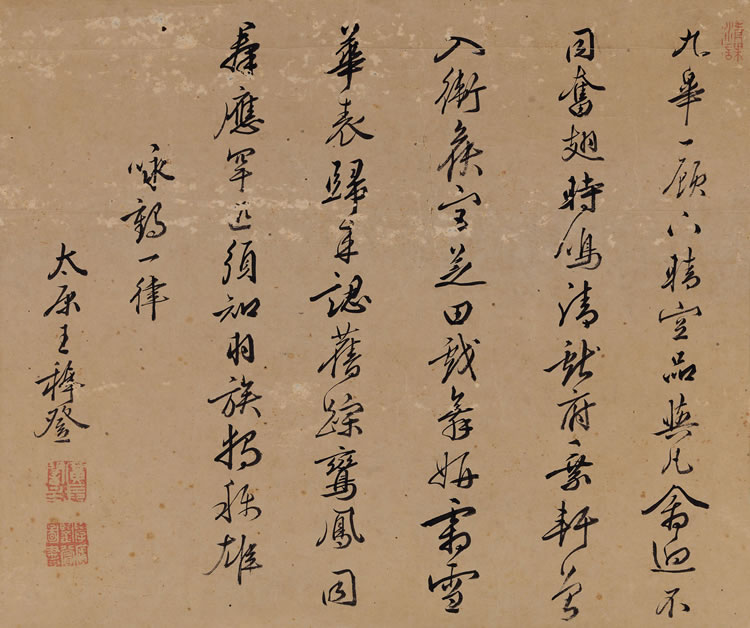 九皋一顧下晴空品與凡禽迥不
同奮翅時鳴清獻府乘軒曾
入衛侯宮芝田戲舞妍霜雪
華表歸來認舊踪鸞鳳同
群應罕匹須知羽族獨稱雄
咏鶴一律
太原王穉登